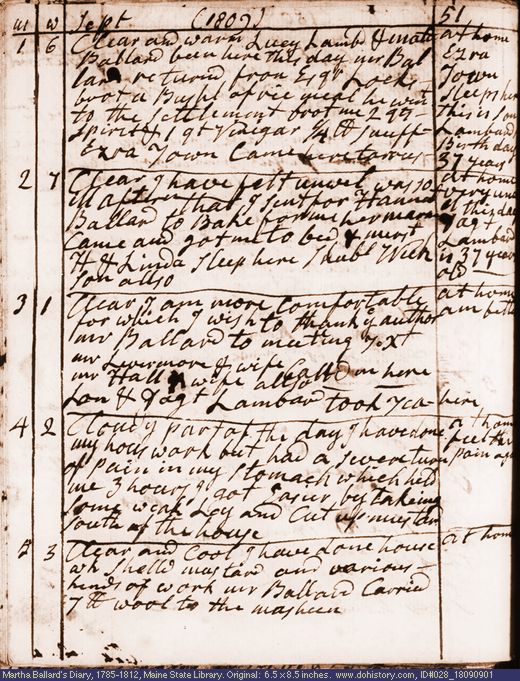 m w Sept (1809) 51
1 6 Clear and warm Lucy Lamb & at home
Ballard been here this day mr Bal Ezra
lard returnd from Esqr Town
brot a Bushl of rie meal he went Sleeps here
to the settlement brot me 2 qts this is Son
Spirit & 1 qt Vinegar 1/4 lb snuff Lambard
Ezra Town Came here Birth day
37 years
2 7 Clear I have felt unwel was so at home
ill after that I sent for Hanna very un
Ballard to Bake for me her marm el this day
Came and got me to bed & Dagt
H & Linda Sleep here Lambard
son also is 37 years
old
3 1 Clear I am more Comfortable at home
for which I wish to thank ye author am better
mr Ballard to meeting
mr Livermore & wife
mr Hall & wife also Calld in here
Son & Dagt Lambard took Tea here
4 2 Cloudy part of the day I have done at home
my hous work but had a severe turn feel the
of Pain in my Stomach which held Pain again
me 3 hours I got Easier by taking
some weak Ley and Cut up mustard
South of the house
5 3 Clear and Cool I have done house at home
wk shelld mustard and various
kinds of work mr Ballard Carried
7 lb wool to the masheen
Martha Ballard's Diary, 1785-1812, Maine State Library. Original: 6.5 x 8.5 inches. www.dohistory.com, ID#028_18090901